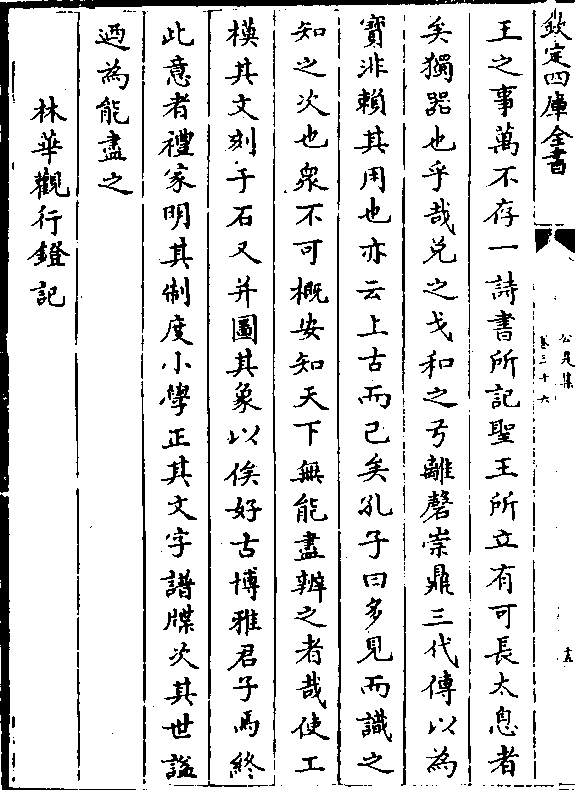 欽定四庫全書
公是集
卷三十六
王之事萬不存一詩書所記聖王所立有可長太息者
矣獨器也乎哉兑之戈和之弓離磬崇鼎三代傳以為
寳非賴其用也亦云上古而已矣孔子曰多見而識之
知之次也衆不可概安知天下無能盡辨之者哉使工
模其文刻于石又并圖其象以俟好古博雅君子焉終
此意者禮家明其制度小學正其文字譜牒次其世諡
迺為能盡之
林華觀行鐙記